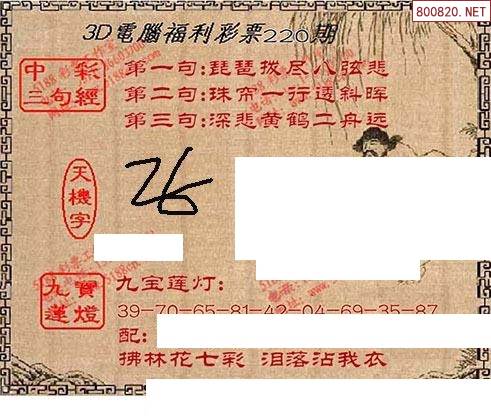 800820.NET
3D電腦福利彩票220期
中彩三句經
第一句:琵琶拨尽八弦悲
第二句:珠帘一行透斜晖
第三句:深悲黄鹤二舟远
天機字
26
九寶蓮燈
九宝莲灯:
39-70-65-81-42-04-69-35-87
配:
拂林花七彩 泪落沾我衣